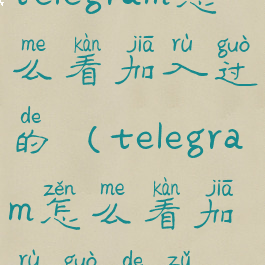 telegram怎
me kàn jiā rù guò
么看加入过
de
的 (telegra
zěn me kàn jiā
m怎么看加
rù guò de zǔ